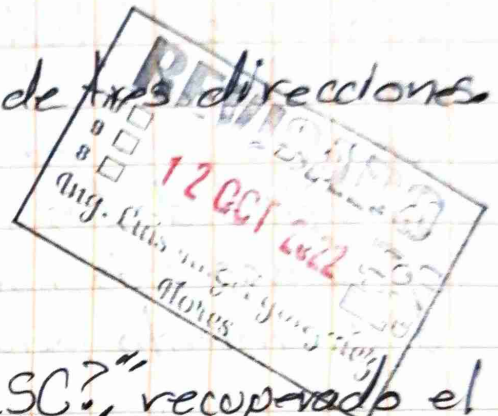 de tres direcciones.
REVISADO
9
8
12 OCT 2022
Ing. Luis
SC?", recuperado el